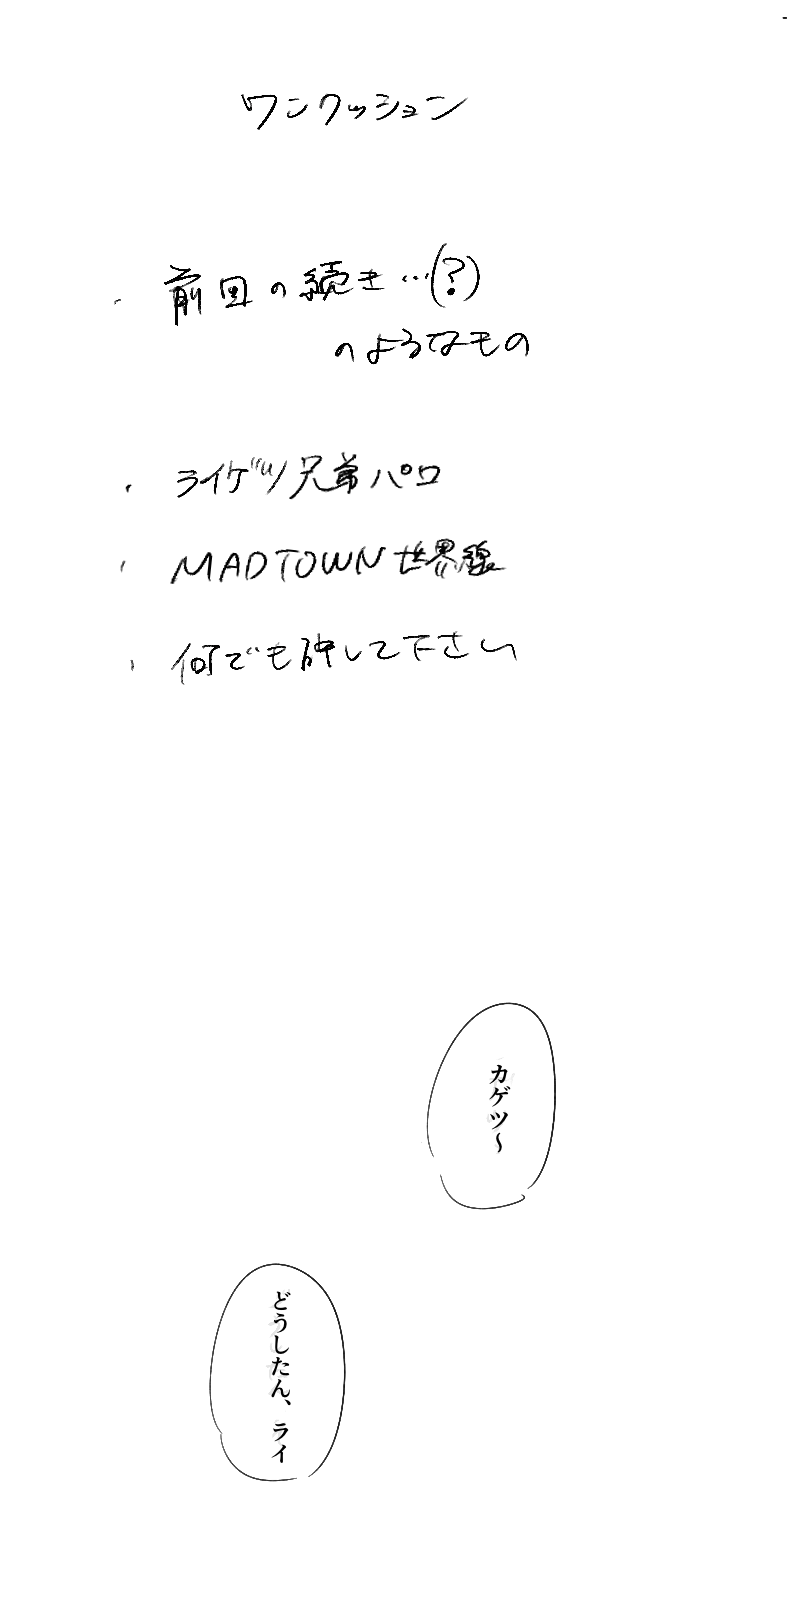 ワンクッション
・前回の続き…(?)
のようなもの
・ライゲツ兄弟パロ
・MADTOWN世界線
・何でも許して下さい
カゲツ〜
どうしたん、ライ